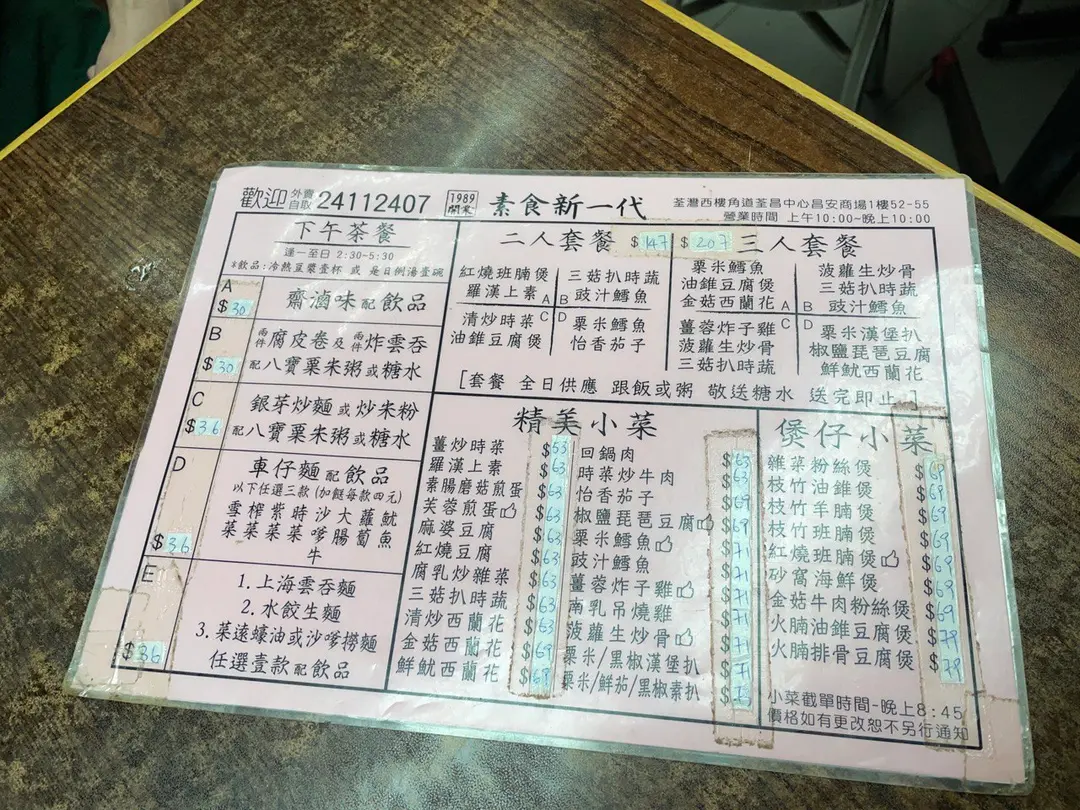 歡迎外賣自取 24112407 1989開業 素食新一代
荃灣西樓角道荃昌中心昌安商場1樓52-55
營業時間 上午10:00~晚上10:00
下午茶餐
逢一至日 2:30-5:30
*飲品:冷熱豆漿壹杯 或 是日例湯壹碗
A $30 齋滷味配飲品
B $30 兩件腐皮卷及兩件炸雲吞
配八寶粟米粥或糖水
C $36 銀芽炒麵或炒米粉
配八寶粟米粥或糖水
D $36 車仔麵配飲品
以下任選三款(加餸每款四元)
雪菜 榨菜 紫菜 時菜 沙嗲牛 大腸 蘿蔔 魷魚
E $36
1. 上海雲吞麵
2. 水餃生麵
3. 菜遠蠔油或沙嗲撈麵
任選壹款配飲品
二人套餐 $147
紅燒班腩煲
羅漢上素 A
B 三菇扒時蔬
豉汁鱈魚
清炒時菜 C
油錐豆腐煲
D 粟米鱈魚
怡香茄子
$207 三人套餐
粟米鱈魚
油錐豆腐煲
金菇西蘭花 A
菠蘿生炒骨
三菇扒時蔬
B 豉汁鱈魚
薑蓉炸子雞 C
菠蘿生炒骨
三菇扒時蔬
D 粟米漢堡扒
椒鹽琵琶豆腐
鮮魷西蘭花
[套餐 全日供應 跟飯或粥 敬送糖水 送完即止]
精美小菜
薑炒時菜 $53
羅漢上素 $63
素腸磨菇煎蛋 $63
芙蓉煎蛋 $63
麻婆豆腐 $63
紅燒豆腐 $63
腐乳炒雜菜 $63
三菇扒時蔬 $63
清炒西蘭花 $63
金菇西蘭花 $69
鮮魷西蘭花 $69
回鍋肉 $63
時菜炒牛肉 $63
怡香茄子 $69
椒鹽琵琶豆腐 $69
粟米鱈魚 $71
豉汁鱈魚 $71
薑蓉炸子雞 $71
南乳吊燒雞 $71
菠蘿生炒骨 $71
粟米/黑椒漢堡扒 $71
粟米/鮮茄/黑椒素扒
煲仔小菜
雜菜粉絲煲 $69
枝竹油錐煲 $69
枝竹羊腩煲 $69
枝竹班腩煲 $69
紅燒班腩煲 $69
砂窩海鮮煲 $69
金菇牛肉粉絲煲 $69
火腩油錐豆腐煲 $79
火腩排骨豆腐煲 $79
小菜截單時間-晚上8:45
價格如有更改恕不另行通知